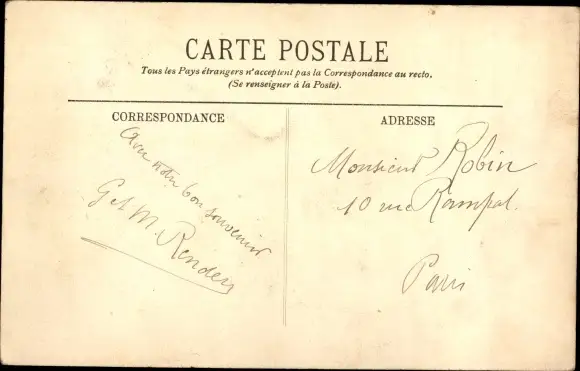 CARTE POSTALE
Tous les Pays étrangers n'acceptent pas la Correspondance au recto.
(Se renseigner à la Poste).
CORRESPONDANCE
ADRESSE
Avec notre bon souvenir
G et M.
Monsieur Robin
10 rue Rampal.
Paris